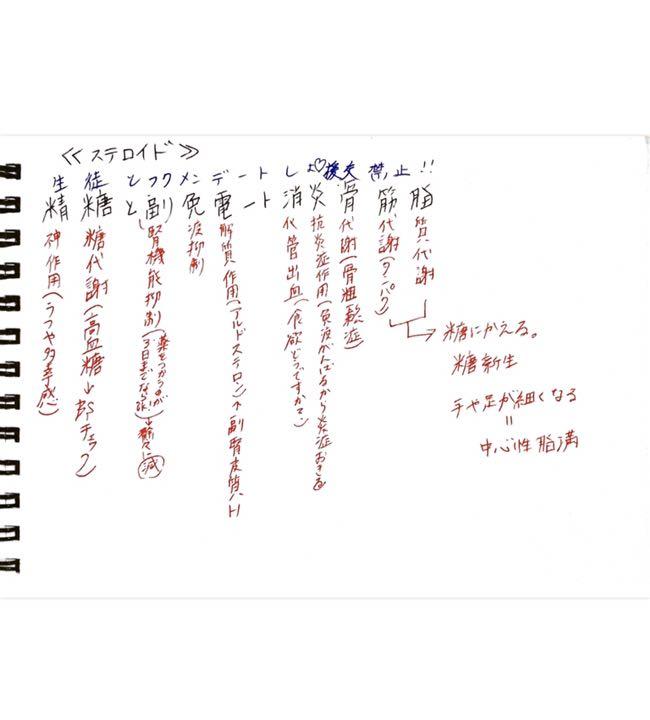 ≪ステロイド≫
生徒とフクメンデートしよ♡援交禁止!!
精糖と副免電ート消炎骨筋脂
神作用(うつや多幸感)
糖代謝(高血糖→BSチェック)
腎機能抑制(薬をつかうのが3日までなら
漸々に減
疫抑制
解質作用(アルドステロン)↑副腎皮質ハート
化管出血(食欲どうですか?)
抗炎症作用(免疫がんばるから炎症おきる
代謝(骨粗鬆症)
代謝(タンパク)
質代謝
糖にかえる。
糖新生
手や足が細くなる
=
中心性脂満